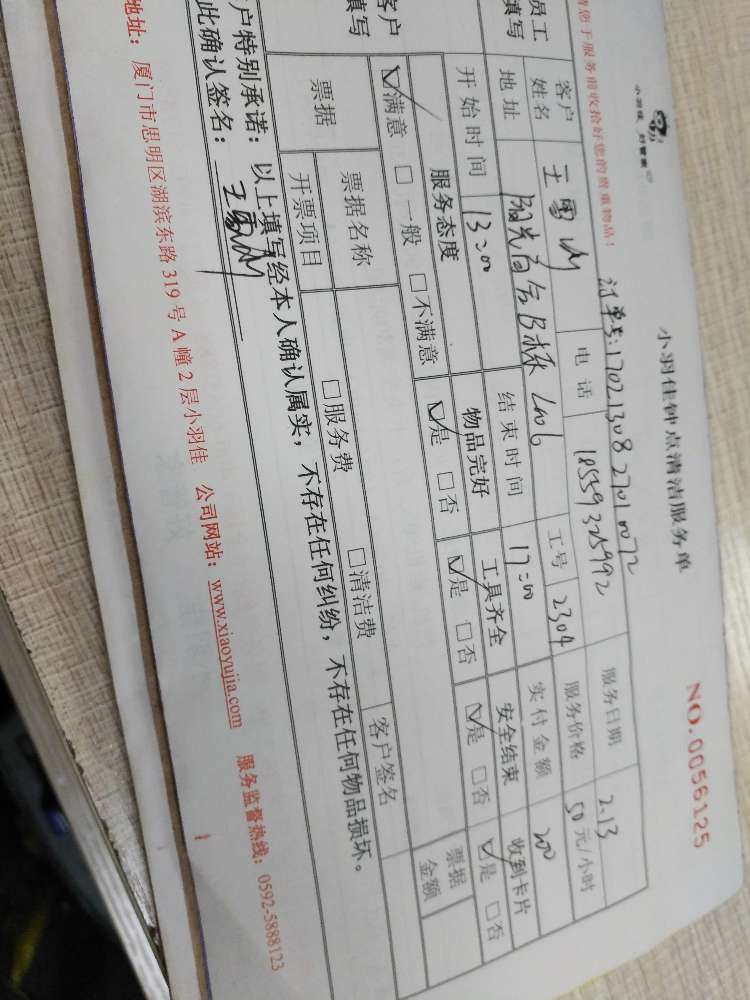 小羽佳 好管家
小羽佳钟点清洁服务单
NO.0056125
请您于服务前收拾好您的贵重物品！
订单号:17021308270110072
员工填写
客户姓名
电话
18559325992
服务日期
2.13
地址
阳光高舍B栋
工号
2304
服务价格
50元/小时
开始时间
13:00
结束时间
17:00
实付金额
200
客户填写
服务态度
物品完好
工具齐全
安全结束
收到卡片
☑满意 □一般 □不满意
☑是 □否
☑是 □否
☑是 □否
☑是 □否
票据
票据名称
□服务费
□清洁费
客户签名
票据金额
开票项目
户特别承诺：以上填写经本人确认属实，不存在任何纠纷，不存在任何物品损坏。
此确认签名：
地址：厦门市思明区湖滨东路319号A幢2层小羽佳 公司网站：www.xiaoyujia.com 服务监督热线：0592-5888123